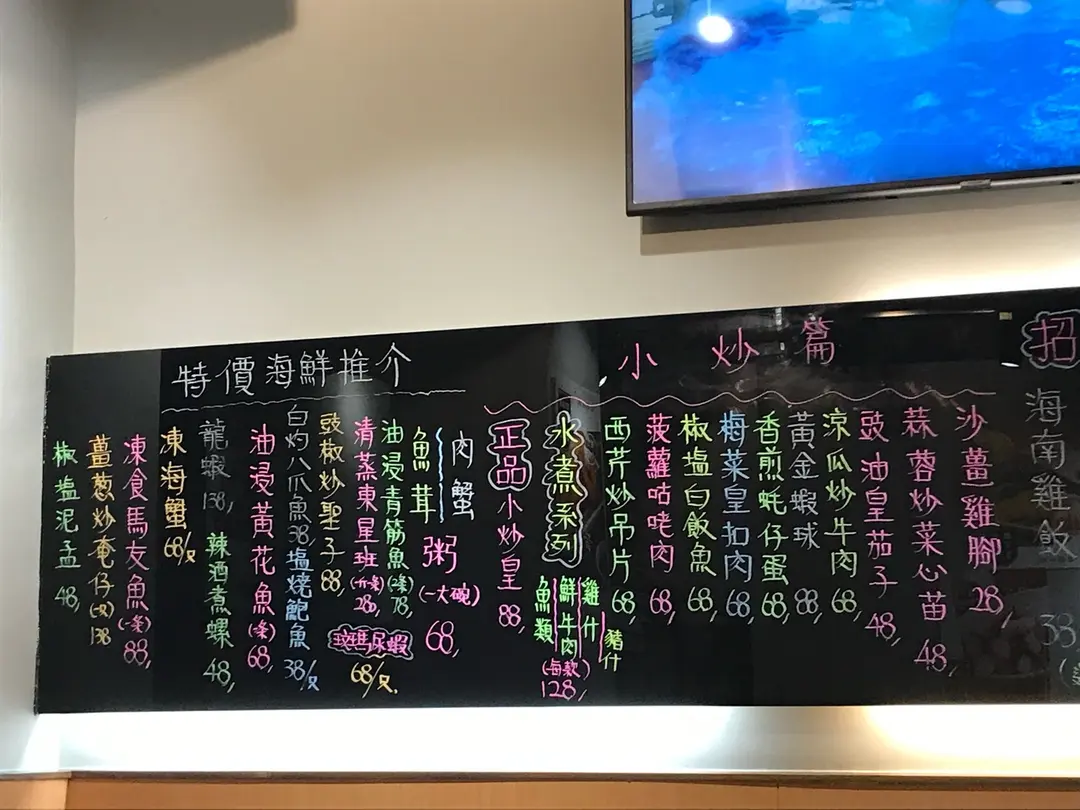 招
海南雞飯
38,
小炒篇
沙薑雞腳 28,
蒜蓉炒菜心苗 48,
豉油皇茄子 48,
涼瓜炒牛肉 68,
黃金蝦球 88,
香煎蚝仔蛋 68,
梅菜皇扣肉 68,
椒塩白飯魚 68,
菠蘿咕咾肉 68,
西芹炒吊片 68,
水煮系列
雞什
豬什
鮮牛肉
魚類
(每款)
128,
正品小炒皇 88,
特價海鮮推介
肉蟹
魚茸
粥(一大碗) 68,
油浸青筋魚(2条) 78,
清蒸東星班 28,
斑琪尿蝦
68/只.
豉椒炒聖子 88,
白灼八爪魚 38,
塩燒鮑魚 38/只
油浸黃花魚(条) 68,
龍蝦 138,
辣酒煮螺 48,
凍海蟹 68/只
凍食馬友魚(一条) 88,
薑蔥炒奄仔(一只) 138
椒塩泥孟 48,